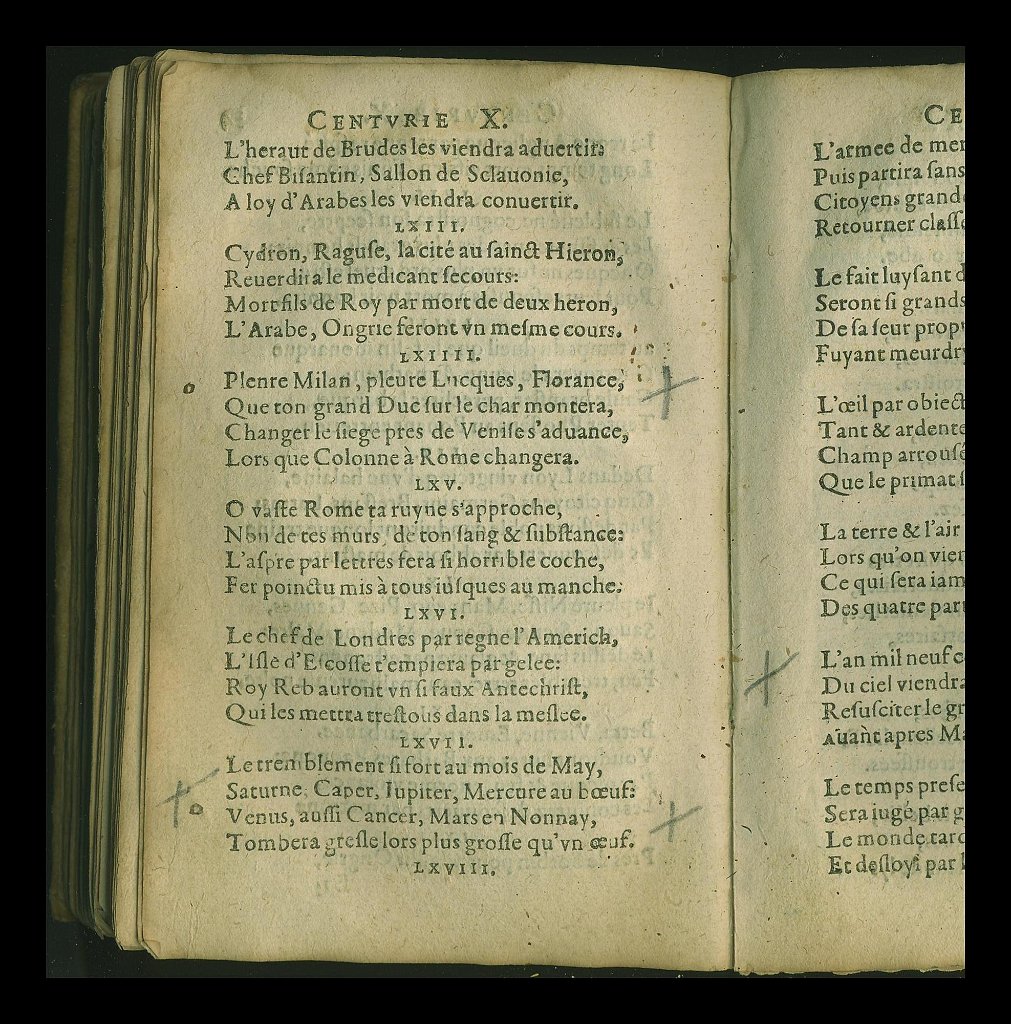 CENTVRIE X.
L'heraut de Brudes les viendra aduertir:
Chef Bisantin, Sallon de Sclauonie,
A loy d'Arabes les viendra conuertir.
LXIII.
Cydron, Raguse, la cité au sainct Hieron,
Reuerdira le medicant secours:
Mort fils de Roy par mort de deux heron,
L'Arabe, Ongrie feront vn mesme cours.
LXIIII.
Plenre Milan, pleure Lucques, Florance,
Que ton grand Duc sur le char montera,
Changer le siege pres de Venise s'aduance,
Lors que Colonne à Rome changera.
LXV.
O vaste Rome ta ruyne s'approche,
Non de tes murs, de ton sang & substance:
L'aspre par lettres fera si horrible coche,
Fer poinctu mis à tous iusques au manche.
LXVI.
Le chef de Londres par regne l'Americh,
L'Isle d'Escosse t'empiera par gelee:
Roy Reb auront vn si faux Antechrist,
Qui les mettra trestous dans la meslee.
LXVII.
Le tremblement si fort au mois de May,
Saturne, Caper, Iupiter, Mercure au bœuf:
Venus, aussi Cancer, Mars en Nonnay,
Tombera gresse lors plus grosse qu'vn œuf.
LXVIII.
CE
L'armee de mer
Puis partira sans
Citoyens grand
Retourner classe
Le fait luysant d
Seront si grands
De sa seur prop
Fuyant meurdr
L'œil par obiect
Tant & ardente
Champ arrousé
Que le primat s
La terre & l'air
Lors qu'on vien
Ce qui sera iam
Des quatre part
L'an mil neuf c
Du ciel viendra
Resusciter le gr
Auant apres Ma
Le temps prese
Sera iugé par g
Le monde tard
Et desloyi par l